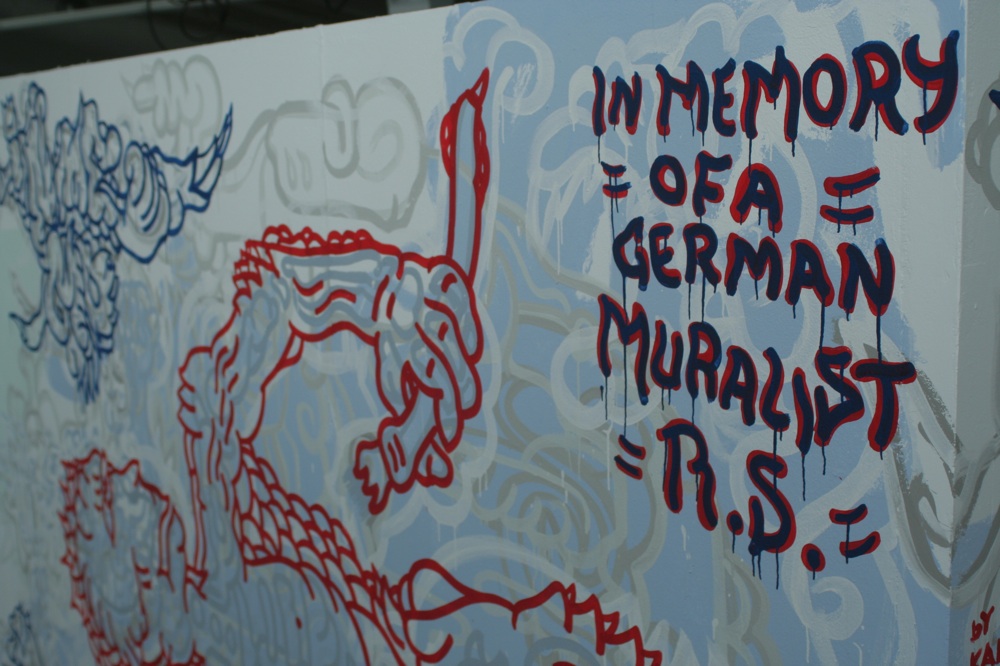 IN MEMORY
= OF A =
GERMAN
MURALIST
= R.S. =
BY